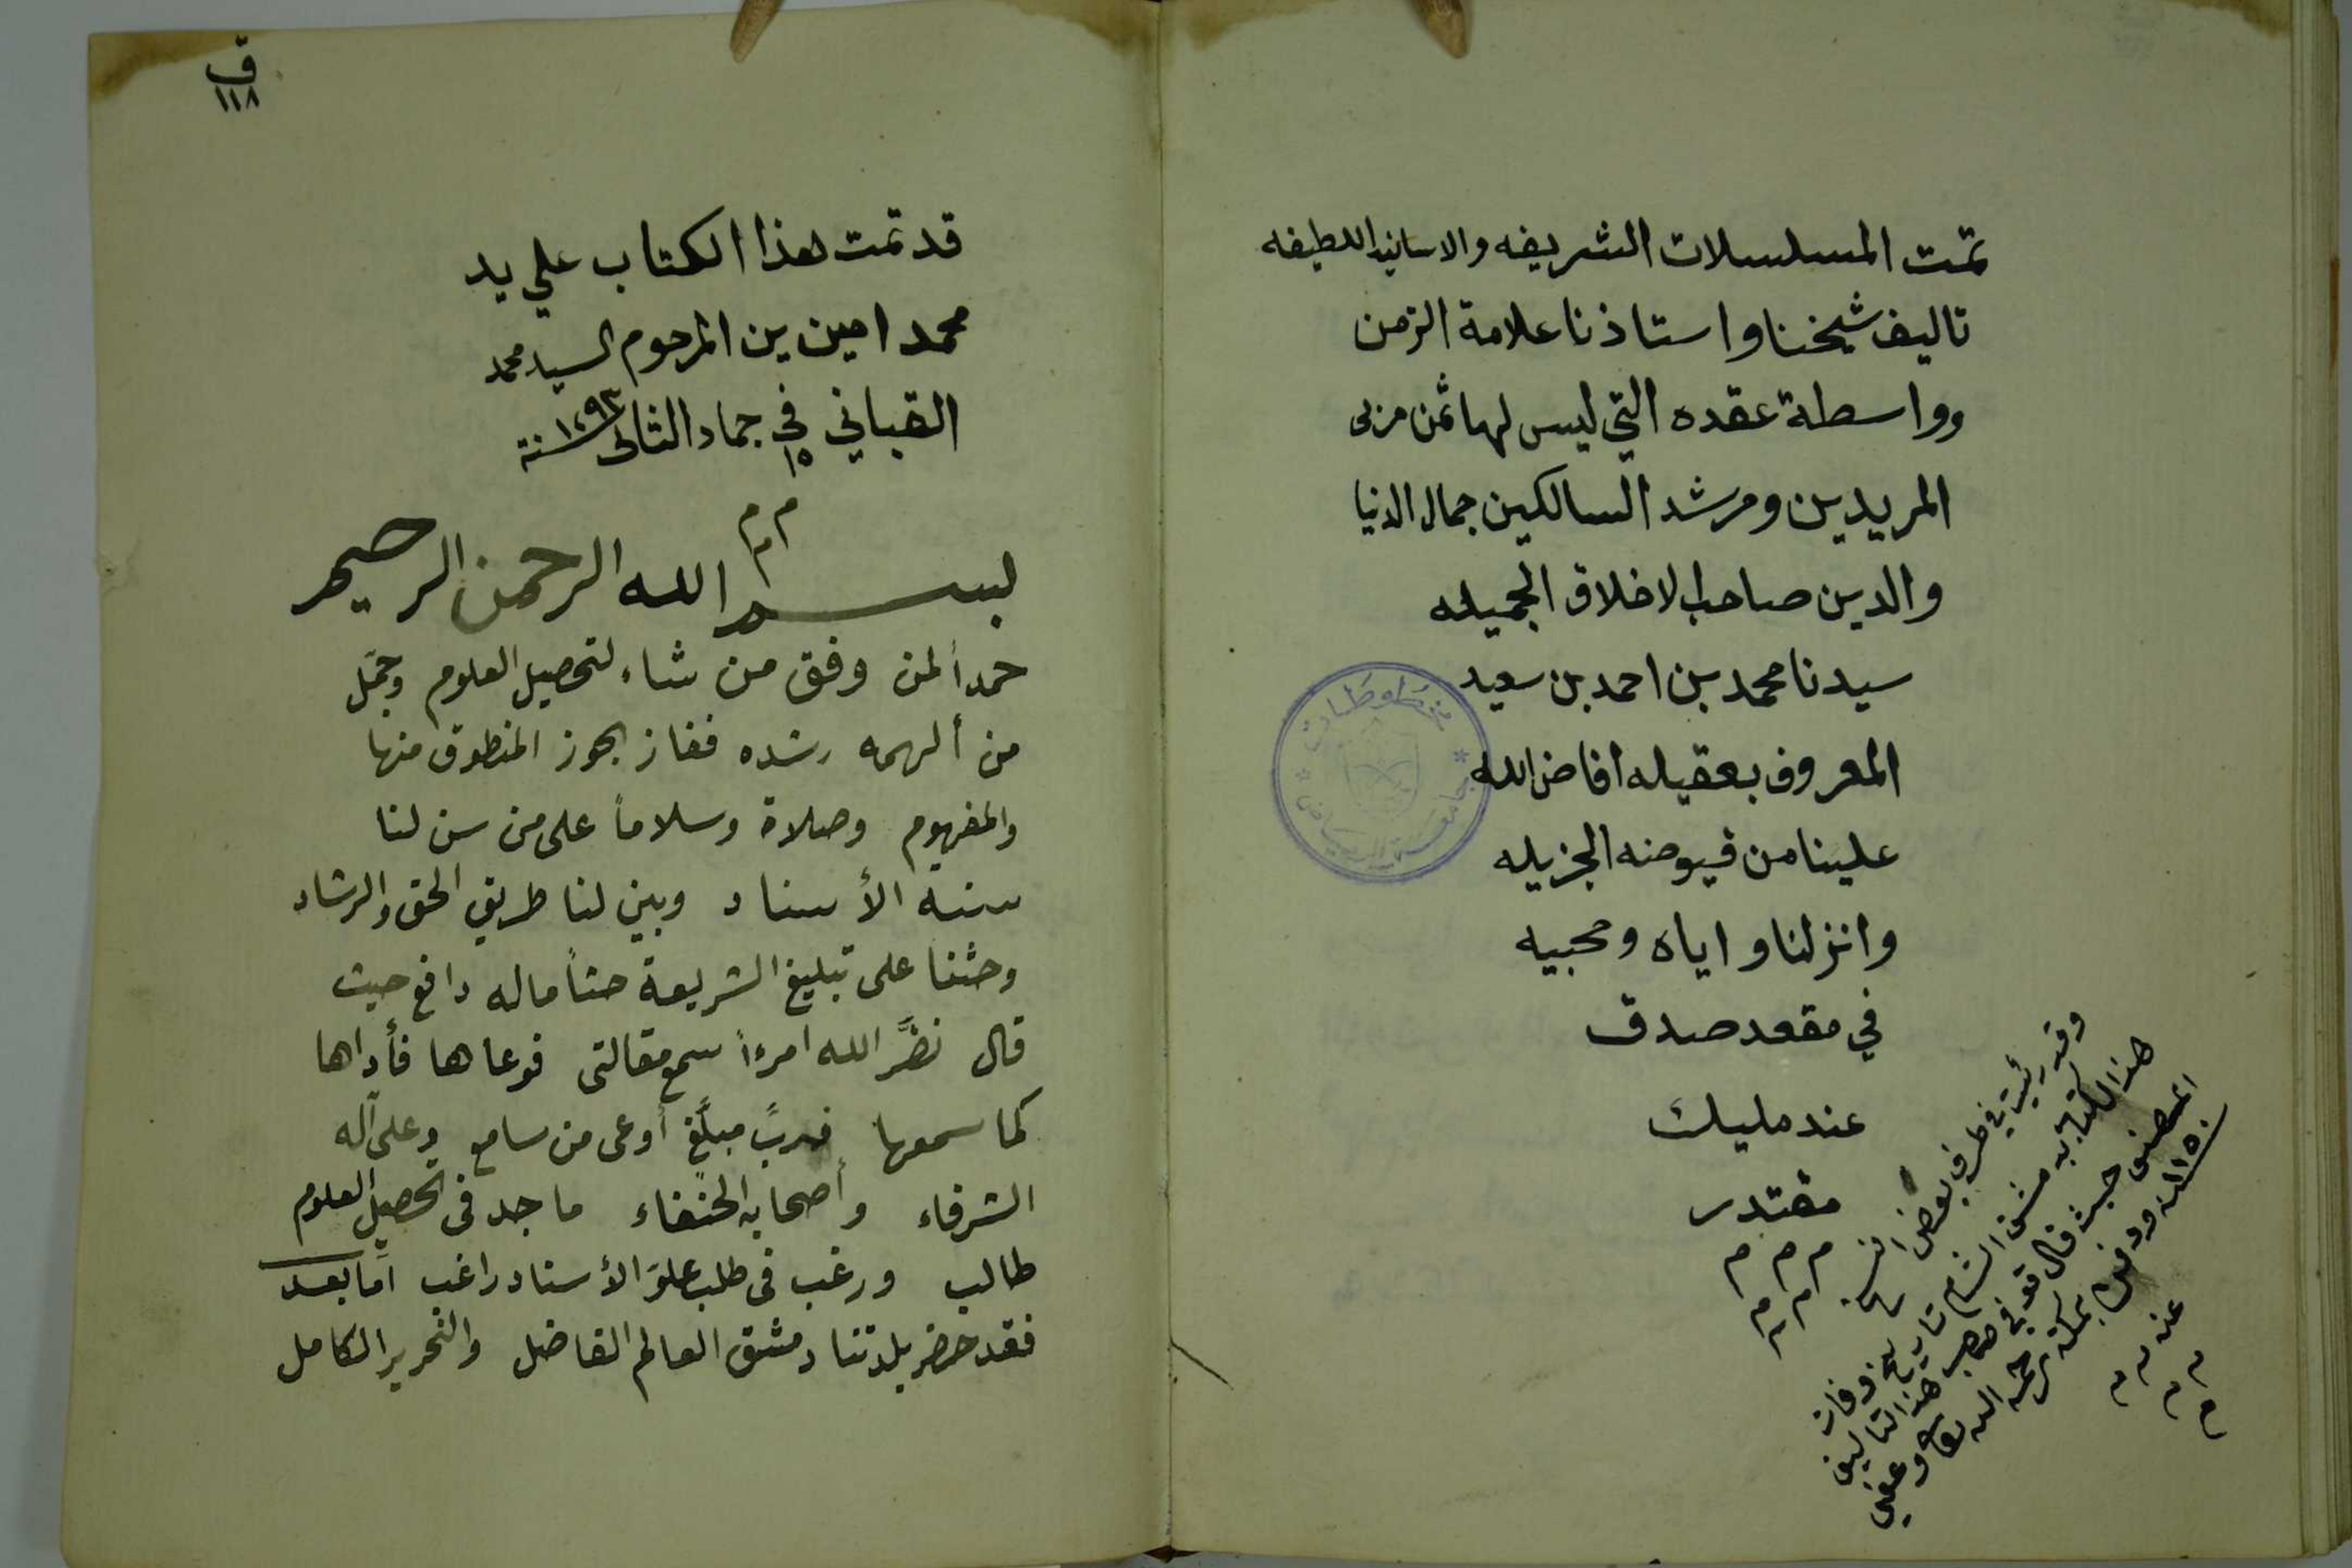 تمت المسلسلات الشريفه والاسانيد اللطيفه
تاليف شيخنا واستاذنا علامة الزمن
وواسطة عقده التي ليس لها ثمن مربي
المريدين ومرشد السالكين جمال الدنيا
والدين صاحب الاخلاق الجميله
سيدنا محمد بن احمد بن سعيد
المعروف بعقيله افاض الله
علينا من فيوضه الجزيله
وانزلنا واياه ومحبيه
في مقعد صدق
عند مليك
مقتدر
م م م
م م
م
مخطوطات
جامعة الرياض
وقد رئيت في طرف بعض النسخ
هذا الكتاب به مشق الشام تاريخ وفات
المصنف حيث قال توفي صاحب هذا التاليف
سنه ١١٥٠ ودفن بمكة رحمه الله تعالى وعفي
عنه م م
م م
م
ف
١١٨
قد تمت هذا الكتاب علي يد
محمد امين بن المرحوم السيد محمد
القباني في ١٥ جماد الثاني سنة ١٢٩٣
م م
م
بسم الله الرحمن الرحيم
حمداً لمن وفق من شاء لتحصيل العلوم وجمّل
من ألهمه رشده ففاز بحوز المنطوق منها
والمفهوم وصلاة وسلاماً على من سن لنا
سنة الأسناد وبين لنا طريق الحق والرشاد
وحثنا على تبليغ الشريعة حثاً ماله دافع حيث
قال نضَّر الله امرءاً سمع مقالتى فوعاها فأداها
كما سمعها فربَّ مبلَّغٍ أوعى من سامع وعلى آله
الشرفاء وأصحابه الحنفاء ما جد فى تحصيل العلوم
طالب ورغب فى طلب علوّ الأسناد راغب امّا بعد
فقد حضر بلدتنا دمشق العالم الفاضل والنحرير الكامل